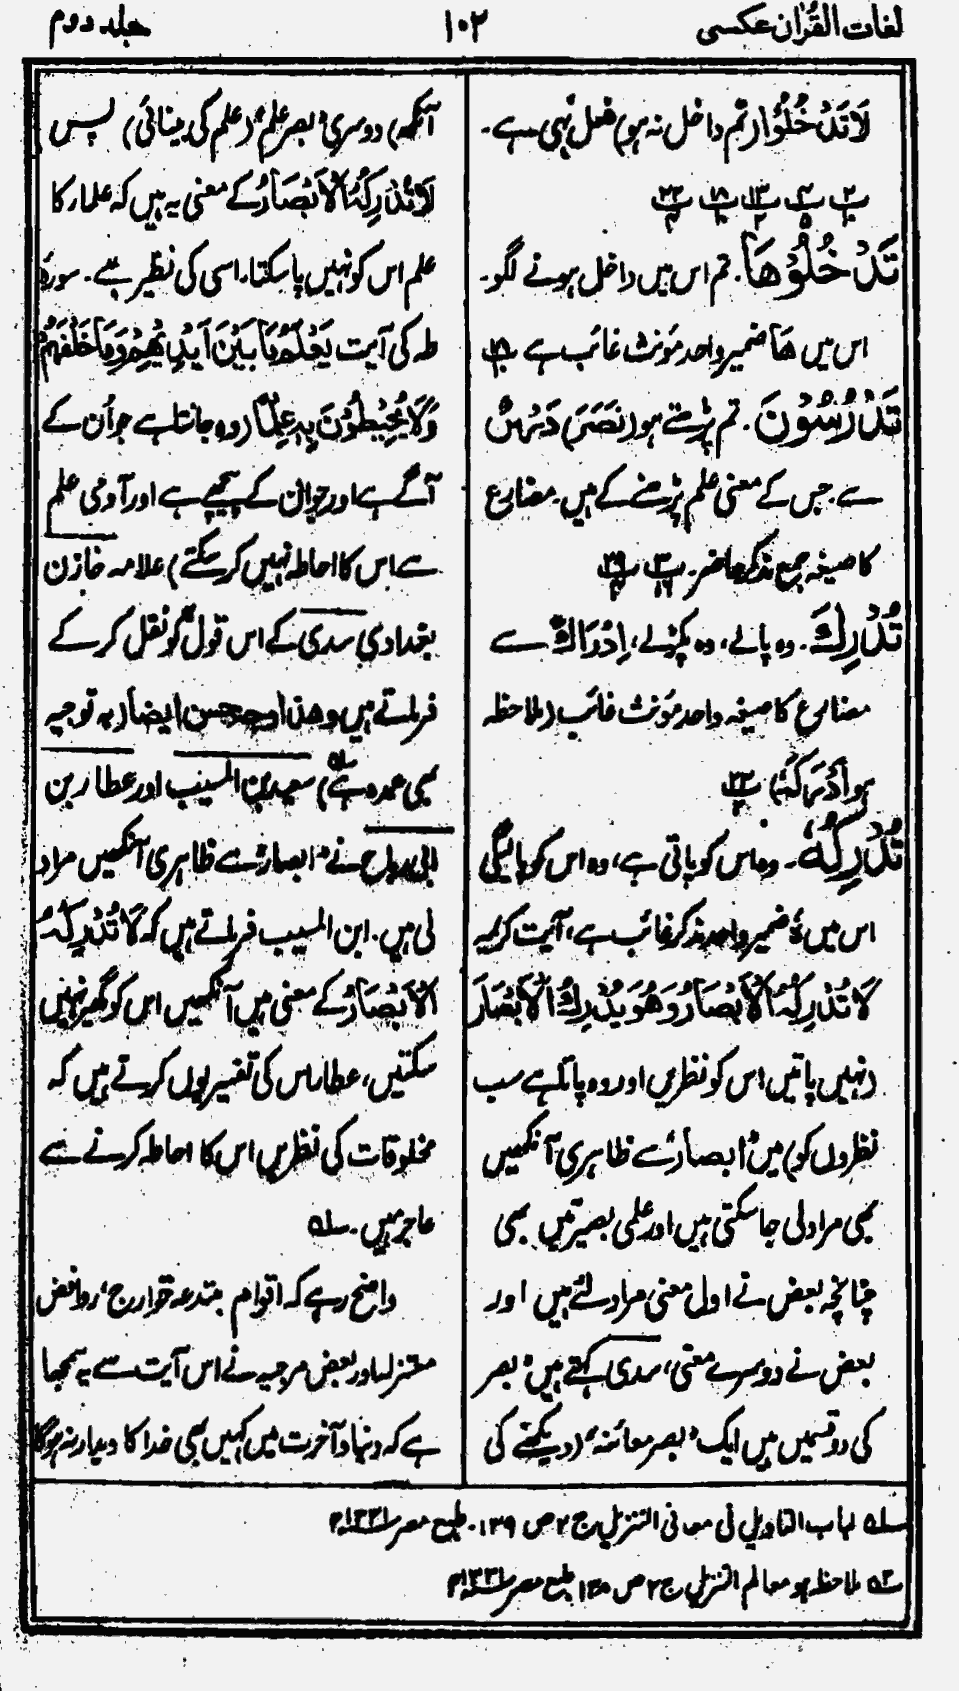 لغات القرآن عکسی ۱۰۲ جلد دوم
لَا تَدْخُلُوْا (تم داخل نہ ہو) فعل نہی ہے۔
تَدْخُلُوْهَا۔ تم اس میں داخل ہونے لگو۔
اس میں ھَا ضمیر واحد مؤنث غائب ہے
تَدْرُسُوْنَ۔ تم پڑھتے ہو (نَصَرَ) دَرْسٌ
سے۔ جس کے معنی علم پڑھنے کے ہیں۔ مضارع
کا صیغہ جمع مذکر حاضر۔
تُدْرِكَ۔ وہ پالے، وہ پکڑلے، اِدْرَاكٌ سے
مضارع کا صیغہ واحد مؤنث غائب (ملاحظہ
ہو اَدْرَكَهُ)
تُدْرِكُهُ۔ وہ اس کو پاتی ہے، وہ اس کو پالیگی
اس میں ہٗ ضمیر واحد مذکر غائب ہے، آیت کریمہ
لَا تُدْرِكُهُ الْاَبْصَارُ وَهُوَ يُدْرِكُ الْاَبْصَارَ
(نہیں پاتیں اس کو نظریں اور وہ پاتا ہے سب
نظروں کو) میں "ابصار" سے ظاہری آنکھیں
بھی مراد لی جا سکتی ہیں اور علمی بصیرتیں بھی
چنانچہ بعض نے اول معنی مراد لئے ہیں اور
بعض نے دوسرے معنی، سدی کہتے ہیں "بصر
کی دو قسمیں ہیں ایک "بصر معائنہ" (دیکھنے کی
آنکھ) دوسری "بصر علم" (علم کی بینائی) پس
لَا تُدْرِكُهُ الْاَبْصَارُ کے معنی یہ ہیں کہ علماء کا
علم اس کو نہیں پا سکتا۔ اسی کی نظیر ہے۔ سورہ
طہ کی آیت يَعْلَمُ مَا بَيْنَ اَيْدِيْهِمْ وَمَا خَلْفَهُمْ
وَلَا يُحِيْطُوْنَ بِهٖ عِلْمًا (وہ جانتا ہے جو اُن کے
آگے ہے اور جو ان کے پیچھے ہے اور آدمی علم
سے اس کا احاطہ نہیں کر سکتے) علامہ خازن
بغدادی سدی کے اس قول کو نقل کر کے
فرماتے ہیں وھذا وجہ حسن ایضا (یہ توجیہ
بھی عمدہ ہے) سعید بن المسیب اور عطار بن
ابی رباح نے "ابصار" سے ظاہری آنکھیں مراد
لی ہیں۔ ابن المسیب فرماتے ہیں کہ لَا تُدْرِكُهُ
الْاَبْصَارُ کے معنی ہیں آنکھیں اس کو گھیر نہیں
سکتیں، عطار اس کی تفسیر یوں کرتے ہیں کہ
مخلوقات کی نظریں اس کا احاطہ کرنے سے
عاجز ہیں۔
واضح رہے کہ اقوام مبتدعہ خوارج، روافض
معتزلہ اور بعض مرجیہ نے اس آیت سے یہ سمجھا
ہے کہ دنیا و آخرت میں کہیں بھی خدا کا دیدار نہ ہوگا
لباب التاویل فی معانی التنزیل ج ۲ ص ۱۳۹۔ طبع مصر ۱۳۳۱ھ
ملاحظہ ہو معالم التنزیل ج ۲ ص ۱۳۸ طبع مصر ۱۳۳۱ھ